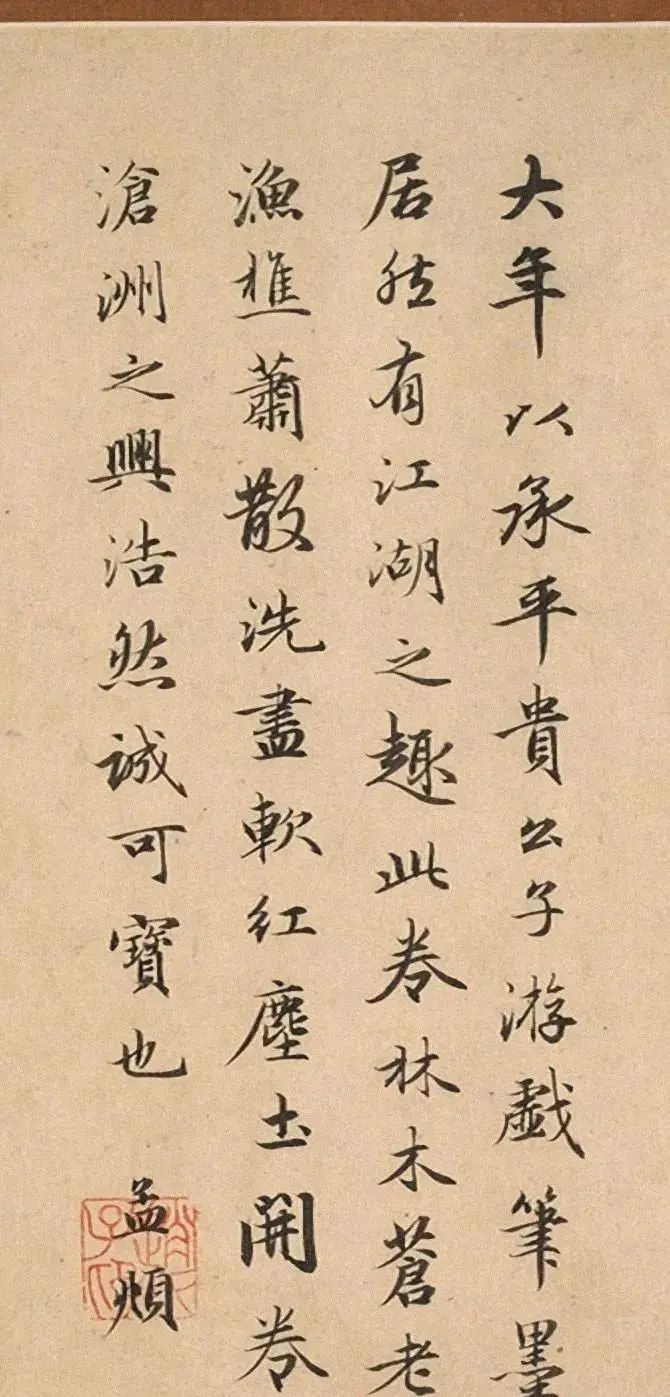 大年以承平貴公子游戲筆墨
居然有江湖之趣此卷林木蒼老
漁樵蕭散洗盡軟紅塵土開卷
滄洲之興浩然誠可寶也 孟頫
趙子昂印